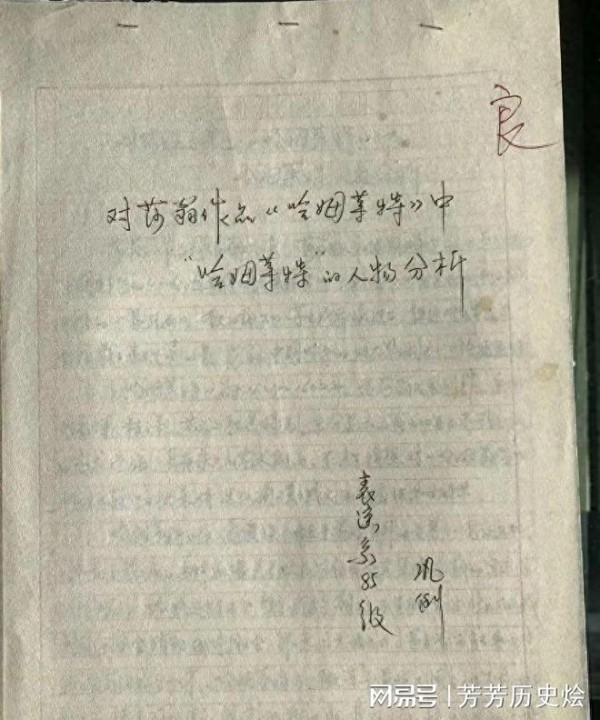 良
对莎翁作品《哈姆莱特》中
“哈姆莱特”的人物分析
表演系85级
巩俐
网易号 | 芳芳历史烩